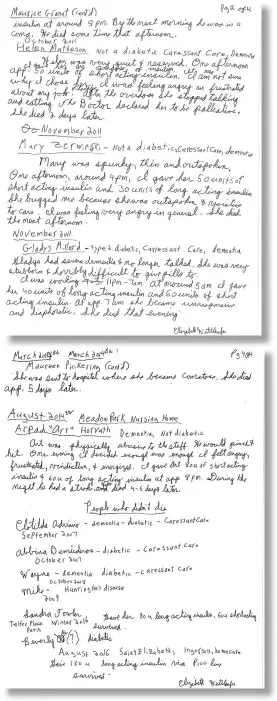 Maurice Granat (cont'd) Pg 2 of 4
insulin at around 9 pm. By the next morning he was in a
coma. He died some time that afternoon.
October 2011
Helen Matheson Not a diabetic Caressant Care, Dementia
Helen was very quiet & reserved. One afternoon
app. 50 units of short acting insulin. I am not sure
why I chose I was feeling angry an frustrated
about my job. After the overdose she stopped talking
and eating. The Doctor declared her to be palliative.
She died 2 days later.
November 2011
Mary Zurawinski - Not a diabetic, Caressant Care, dementia
Mary was spunky, thin and outspoken.
One afternoon, around 4pm, I gave her 50 units of
short acting insulin and 30 units of long acting insulin
She bugged me because she was outspoken &
to care. I was feeling very angry in general. She died
the next afternoon.
November 2011
Gladys Millard - type 2 diabetic, Caressant Care, dementia
Gladys had severe dementia & no longer talked. She was very
stubborn & horribly difficult to give pills to.
I was working 11pm - 7am at around 5am I gave
her 40 units of long acting insulin and 60 units of short
acting insulin. at app. 7am she became unresponsive
and diaphoretic. She died that evening
Elizabeth Wettlaufer
March 2014 Pg 4 of 4
Maureen Pickering (cont'd)
She was sent to hospital where she became comatose. She died
app. 5 days later.
August 2014 Meadow Park Nursing Home
Arpad "Art" Horvath Dementia, Not diabetic
Art was physically abusive to the staff. He would pinch &
hit. One evening I decided enough was enough I felt angry,
frustrated, vindictive, & energized. I gave Art 80u of short acting
insulin & 60u of long acting insulin at app 8pm. During the
night he had a stroke and died 4-5 days later
People who didn't die
Clotilde Adriano - dementia - diabetic - Caressant Care
September 2007
Albina Demedeiros - diabetic - Caressant Care
October 2007
Wayne - dementia diabetic - Caressant Care
October 2008
Mike - Huntington's disease
2009
Sandra Towler
Telfer Place Winter 2016 Gave her 80u long acting insulin, 60u short acting
Paris survived.
Beverly (?) diabetic
August 2016 Saint Elizabeth, Ingersoll, homecare
Gave 180u long acting insulin via Picc line
survived -
Elizabeth Wettlaufer